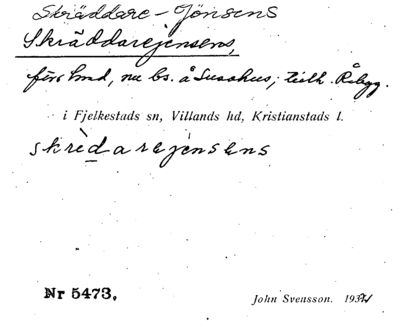 Skräddare-Jönsens
Skräddarejensens,
förr hmd, nu bs. å Susahus; tillh. Råbygg.
i Fjelkestads sn, Villands hd, Kristianstads l.
skrèdarejensens
Nr 5473,
John Svensson. 1932